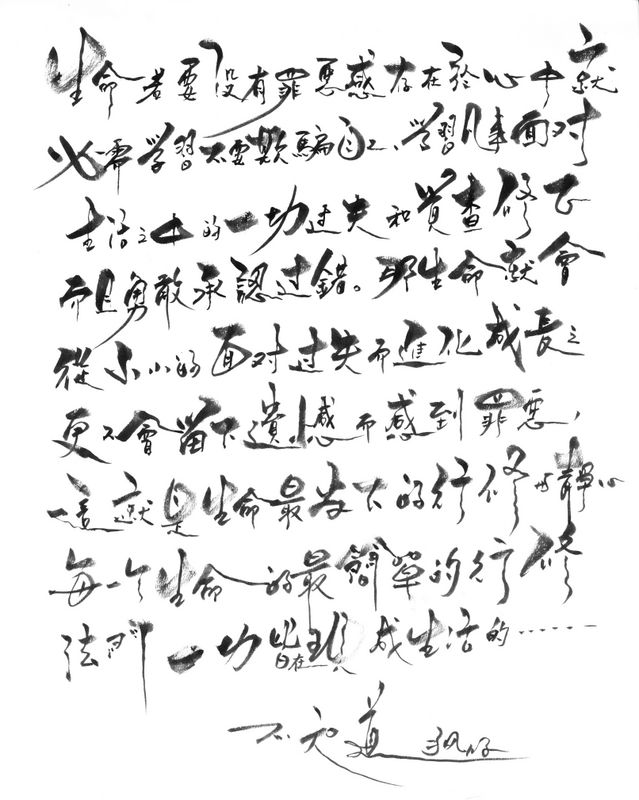 生命者要沒有罪惡感存在於心中就
必需學習不要欺騙自己、學習凡事面对
生活之中的一切过失和質查修正
而且勇敢承認过錯。那生命就會
從小小的面对过失而進化成長之
更不會留下遺憾而感到罪惡，
這就是生命最当下的行修与靜心
每一个生命的最簡單的行修
法門一切皆在現成生活的……
不知道